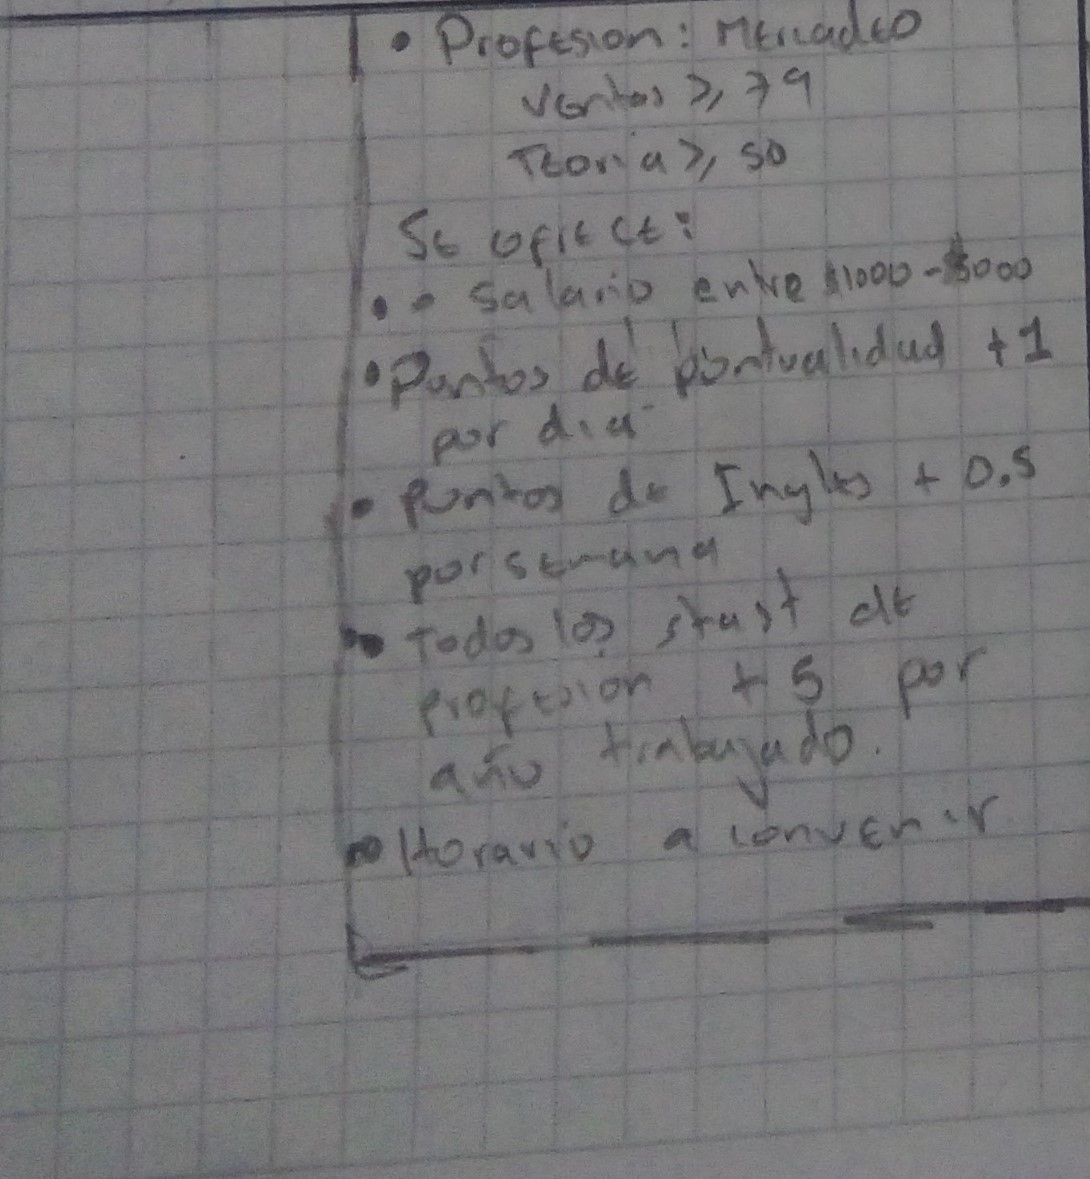 • Profesion: Mercadeo
Ventas ≥ 79
Teoria ≥ 50
Se ofrece:
• • Salario entre $1000 - $3000
• Puntos de puntualidad + 1
por dia
• Puntos de Ingles + 0.5
por semana
• Todos los stast de
profesion + 5 por
año trabajado.
• Horario a convenir